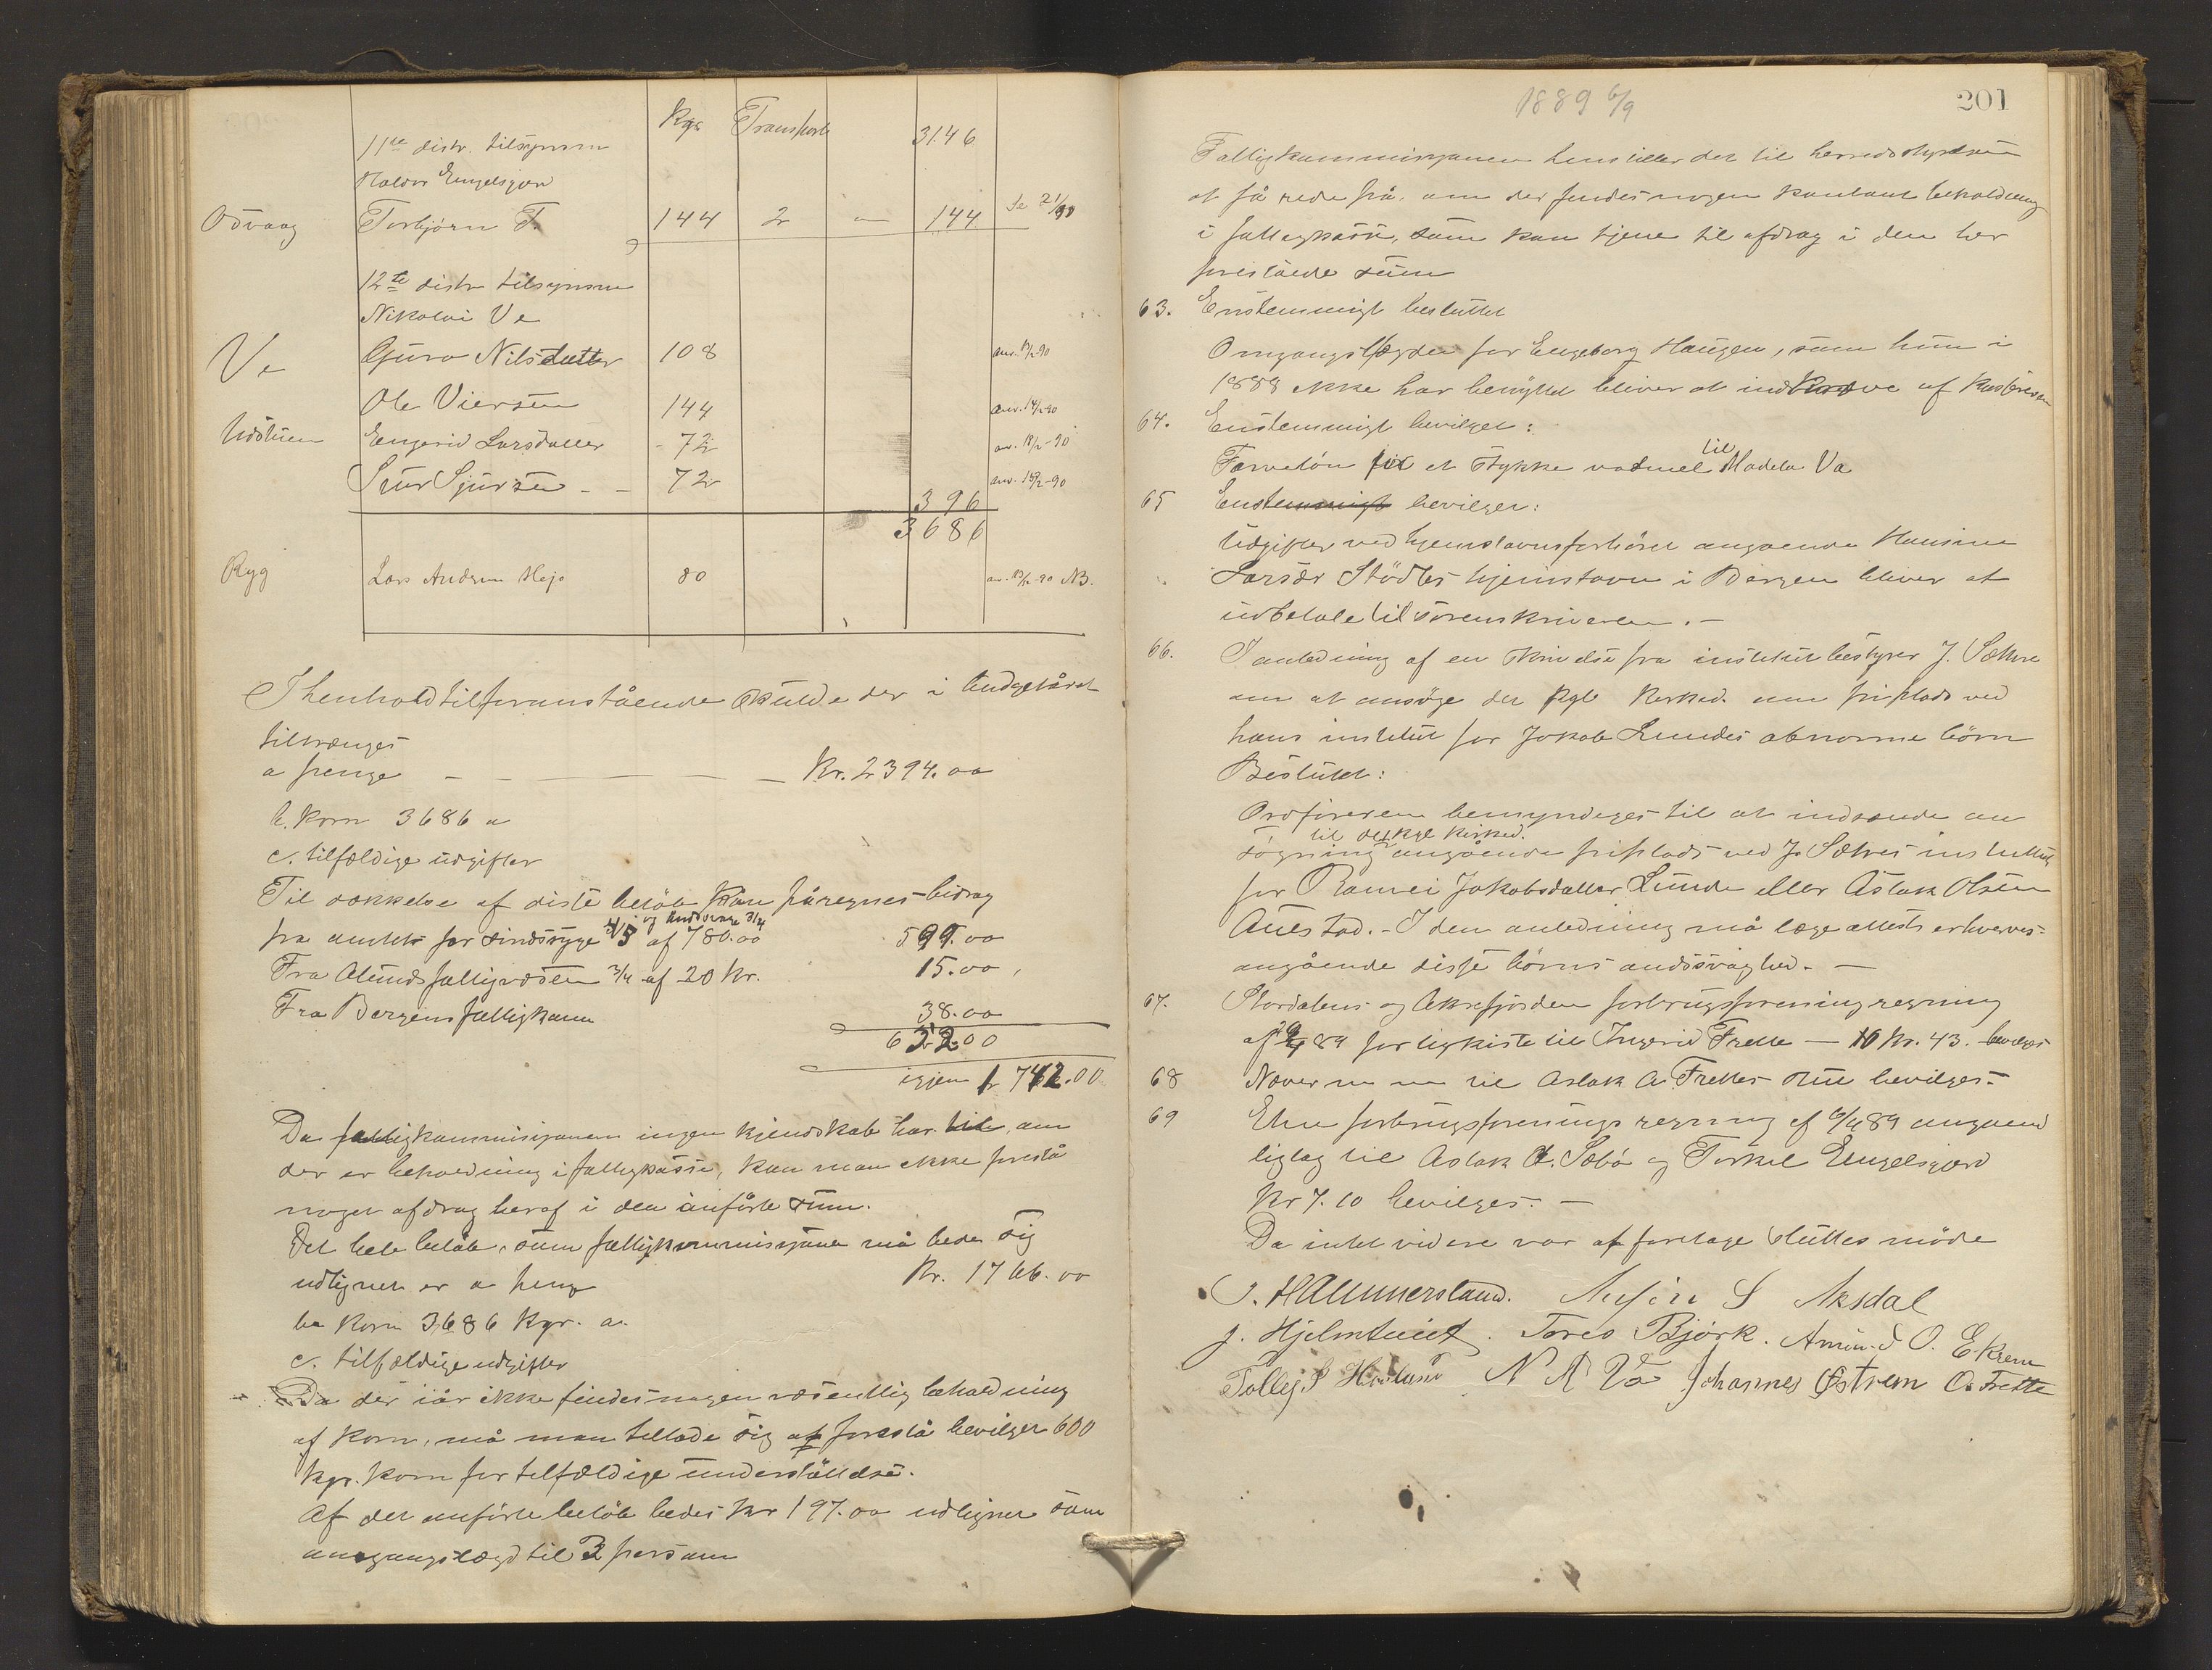 Kgr Transport 3146
11te distr. tilsynsm
Haldor Engelsgjerd
Torbjørn 144 2 144
12te distr tilsynsm
Nikolai Ve
Ve Guro Nilsdatter 108 anv. 13/2-90
Ole Viersen 144 anv. 14/2-90
Engerid Larsdatter 72 anv. 18/2-90
Sjur Sjursen - - 72 anv. 15/2-90
396
3686
Ryg Lars Andersen 80 NB.
I henhold til foranstående skulde der i budgetåret
tiltrænges
a penge - - - - Kr. 2394.00
b. Korn 3686 "
c. tilfældige udgifter
Til dækkelse af disse beløb kan påregnes bidrag
fra amtet for sindssyge 4/5 af 780.00 599.00
og Andssvage 3/4
Fra Ølunds fattigvæsen 3/4 af 20 kr. 15.00
Fra Bergens fattigkasse 38.00
652.00
igjen 1742.00
Da fattigkommisjonen ingen kjendskab har til, om
der er beholdning i fattigkassen, kan man ikke foreslå
noget afdrag heraf i den anførte sum.
Det hele beløb, som fattigkommisjonen må bede sig
udlignet er a penge Kr. 1766.00
b. Korn 3686 Kgr. a.
c. tilfældige udgifter
Da der iår ikke findes nogen væsentlig beholdning
af korn, må man tillade sig at foreslå bevilget 600
kgr. korn for tilfældige understøttelse.
Af det anførte beløb bedes kr 197.00 udlignet som
omgangslægd til 3 person
1889 6/9
201
Fattigkommisjonen henstiller det til herredsstyrelsen
at få rede på, om der findes nogen kontant beholdning
i fattigkassen, som kan tjene til afdrag i den her
foreslåede sum
63. Enstemmigt besluttet
Omgangslægden for Engeborg Haugen, som hun i
1888 ikke har benyttet bliver at indkræve af kassereren
64. Enstemmigt bevilget:
Farveløn for et stykke vadmel til Madela Va
65 Enstemmigt bevilget:
Udgifter ved hjemstavnsforhøret angaaende Hansine
Larsdr Stødles hjemstavn i Bergen bliver at
udbetale til sorenskriveren. -
66. I anledning af en skrivelse fra institutbestyrer J. Sæthre
om at ansøge det kgl. Kirked. om friplads ved
hans institut for Jakob Lundes abnorme børn
Besluttet:
Ordføreren bemyndiges til at indsende an
til det kgl kirked.
søgning angående friplads ved J. Sæthres institut
for Ramei Jakobsdatter Lunde eller Aslak Olsen
Austad. - I den anledning må lægeattest erhverves
angående disse børns andssvaghed. -
67. Stordalens og Åkrefjordens forbrugsforening regning
af 29/4 89 for ligkiste til Ingerid Frette - 10 Kr. 43. bevilges
68 Næver m m til Aslak A. Frettes stue bevilges.
69 Etne forbrugsforenings regning af 6/4 89 angaaend
liglag til Aslak A. Sæbø og Torkel Engelsgjerd
Kr 7.10 bevilges. -
Da intet videre var at foretage sluttes møde
J. Hammersland. S Aksdal
J. Hjelmtveit. Tores Bjørk. Amund O. Ekrene
Tollej S Høiland N A Va Johannes Østrem O. Frette